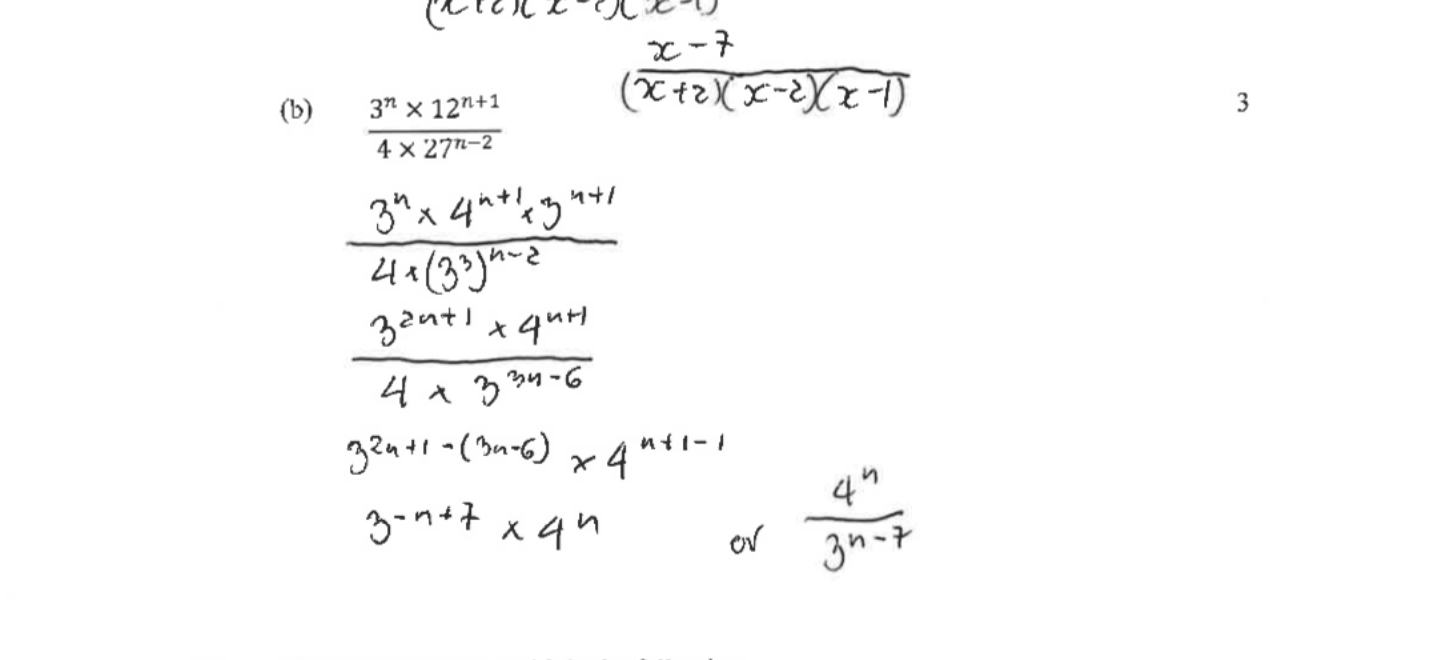 x-7
(x+2)(x-2)(x-1)
(b) 3ⁿ × 12ⁿ⁺¹ 3
4 × 27ⁿ⁻²
3ⁿ × 4ⁿ⁺¹ × 3ⁿ⁺¹
4 × (3³)ⁿ⁻²
3²ⁿ⁺¹ × 4ⁿ⁺¹
4 × 3³ⁿ⁻⁶
3²ⁿ⁺¹⁻⁽³ⁿ⁻⁶⁾ × 4ⁿ⁺¹⁻¹
3⁻ⁿ⁺⁷ × 4ⁿ or 4ⁿ
3ⁿ⁻⁷